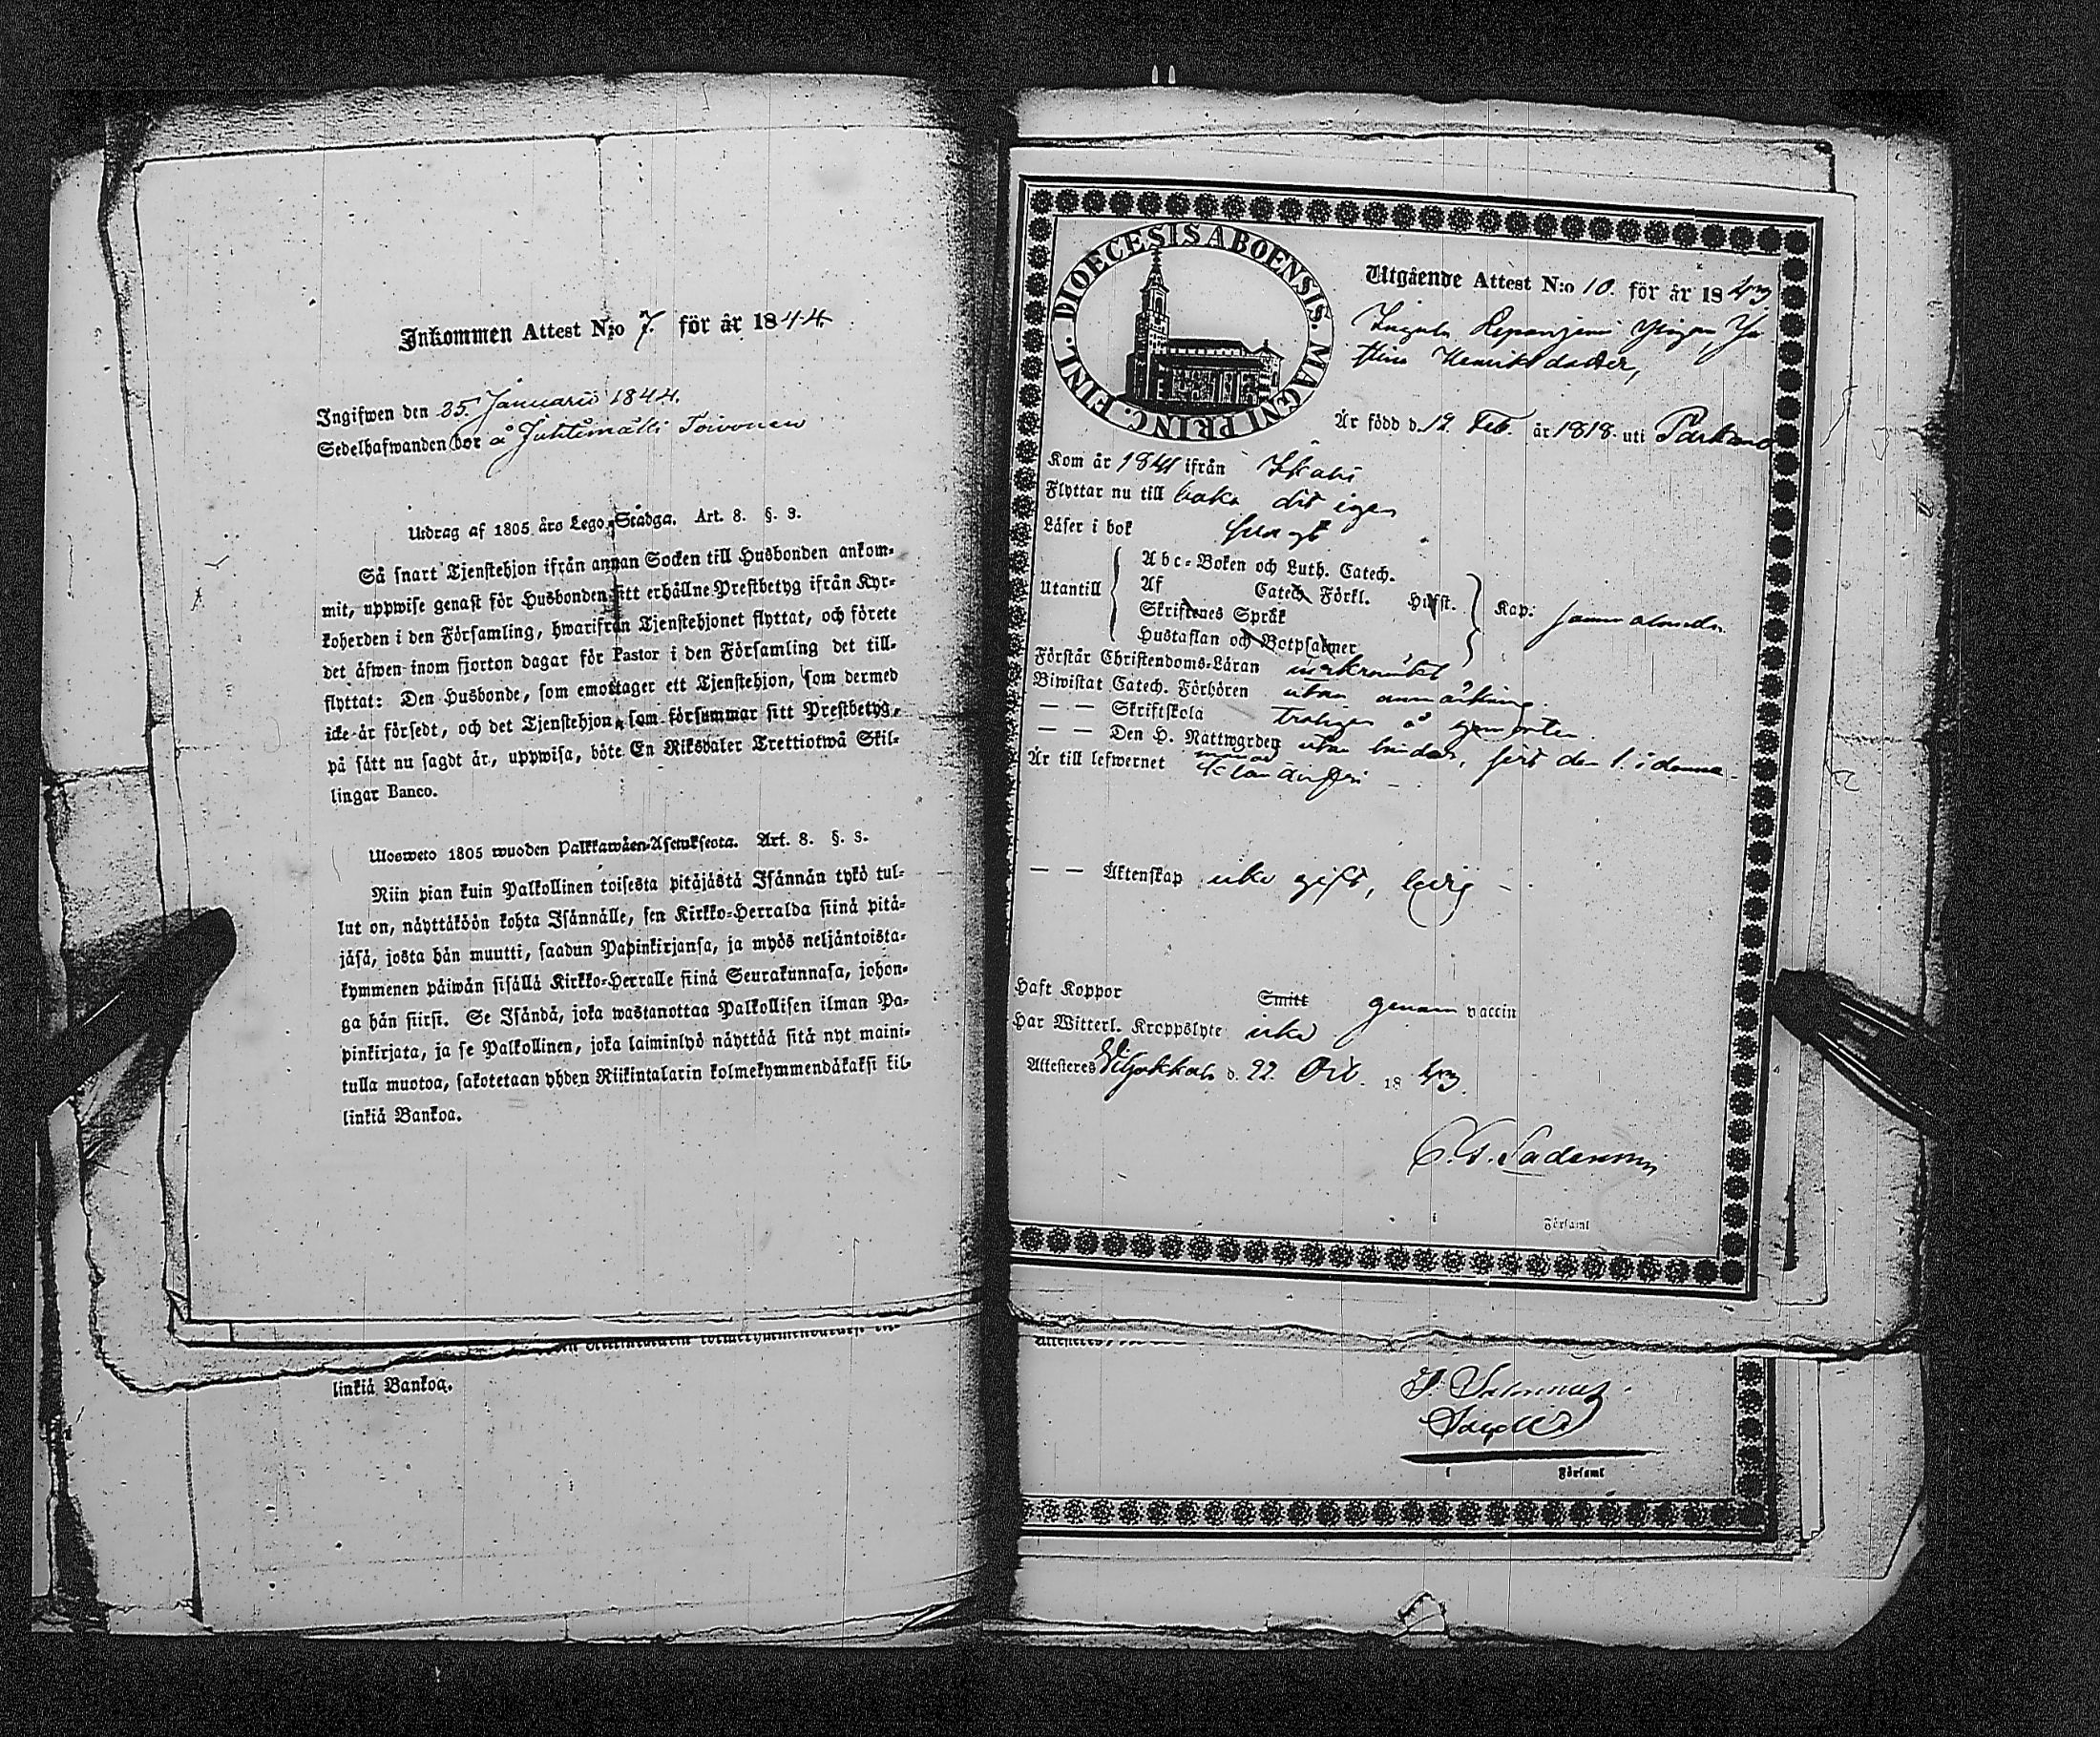 Inkommen Attest N:o 7. för år 1844.
Ingifwen den 25. Januarii 1844.
Sedelhafwanden bor å Juhtimäki Toivonen
Utdrag af 1805 års Lego-Stadga. Art. 8. §. 9.
Så snart Tjenstehjon ifrån annan Socken till Husbonden ankom-
mit, uppwise genast för Husbonden sitt erhållne Prestbetyg ifrån Kyr-
koherden i den Församling, hwarifrån Tjenstehjonet flyttat, och förete
det äfwen inom fjorton dagar för Pastor i den Församling det till-
flyttat: Den Husbonde, som emottager ett Tjenstehjon, som dermed
icke är försedt, och det Tjenstehjon, som försummar sitt Prestbetyg,
på sätt nu sagdt är, uppwisa, böte En Riksdaler Trettiotwå Skil-
lingar Banco.
Ulosweto 1805 wuoden Palkkawäen-Asetuksesta. Art. 8. §. 9.
Niin pian kuin Palkollinen toisesta pitäjästä Isännän tykö tul-
lut on, näyttäköön kohta Isännälle, sen Kirkko-Herralda siinä pitä-
jäsä, josta hän muutti, saadun Papinkirjansa, ja myös neljäntoista-
kymmenen päiwän sisällä Kirkko-Herralle siinä Seurakunnasa, johon-
ga hän siirsi. Se Isändä, joka wastanottaa Palkollisen ilman Pa-
pinkirjata, ja se Palkollinen, joka laiminlyö näyttää sitä nyt maini-
tulla muotoa, sakotetaan yhden Riikintalarin kolmekymmendäkaksi kil-
linkiä Bankoa.
linkiä Bankoa.
DIOECESIS ABOENSIS. MAGNI PRINC. FINL.
Utgående Attest N:o 10. för år 1843
Henriksdotter,
Är född d. 12. Feb. år 1818. uti Parkano
Kom år 1841 ifrån Ikalis
Flyttar nu till baka dit igen
Läser i bok
Utantill
Abc-Boken och Luth. Catech.
Af Catech. Förkl. Husst.
Skriftenes Språk
Hustaflan och Botpsalmer
Kap:
Förstår Christendoms-Läran
Biwistat Catech. Förhören utan anmärkning.
— — Skriftskola
— — Den H. Nattwarden utan hinder, sist den 1. i denna
Är till lefwernet
— — Äktenskap icke gift, ledig
Haft Koppor Smitt genom vaccin
Har Witterl. Kroppslyte icke
Attesteres Wiljakkala d. 22 Oct. 1843.
Församl
i Församl